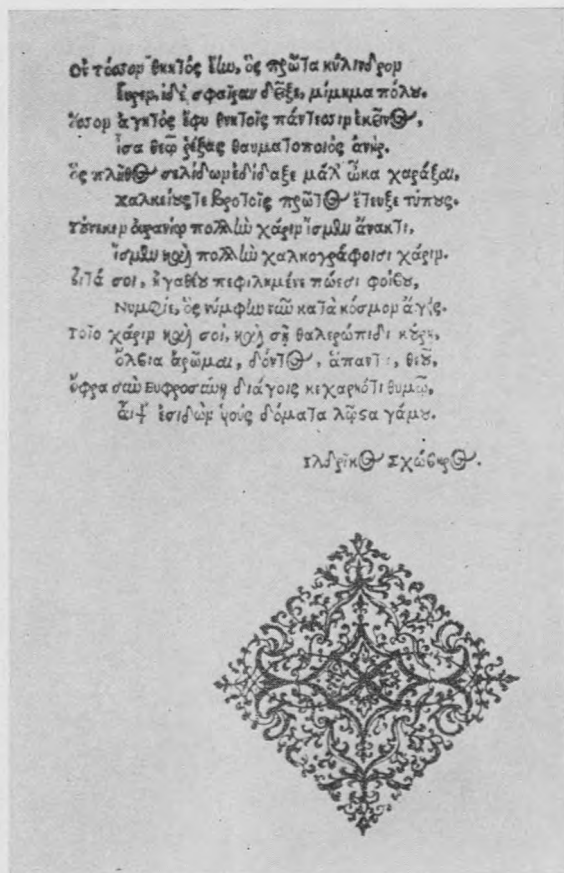 Οὐ τόσσον θνητός ἔην, ὃς πρῶτα κύλινδρον
Εὗρεν, ἰδὲ σφαῖραν δεῖξε, μίμημα πόλου.
Ὅσσον ἀγητός ἔφυ θνητοῖς πάντεσσιν ἐκεῖνος,
ἶσα θεῷ ῥέξας θαυματοποιός ἀνήρ.
Ὃς πλῆθος σελίδων ἐδίδαξε μάλ' ὦκα χαράξαι,
χαλκείους τε βροτοῖς πρῶτος ἔτευξε τύπους.
Τοὔνεκεν οὐρανίῳ πολλὴν χάριν ἴσμεν ἄνακτι,
ἴσμεν καὶ πολλὴν χαλκογράφοισι χάριν.
Εἶτά σοι, ἠγαθέου πεφιλημένε πώεσι φοίβου,
Νυμφίε, ὃς νύμφην νῦν κατὰ κόσμον ἄγεις.
Τοῖο χάριν καὶ σοί, καὶ σῇ θαλερώπιδι κούρῃ,
ὄλβια ἀρῶμαι, δόντος, ἅπαντα, θεοῦ,
ὄφρα σὺν Ευφροσύνῃ διάγοις κεχαρηότι θυμῷ,
αἶψ' ἐσιδὼν δόματα λῷστα γάμου.
Ιλδρῖκος Σχώβηρος.